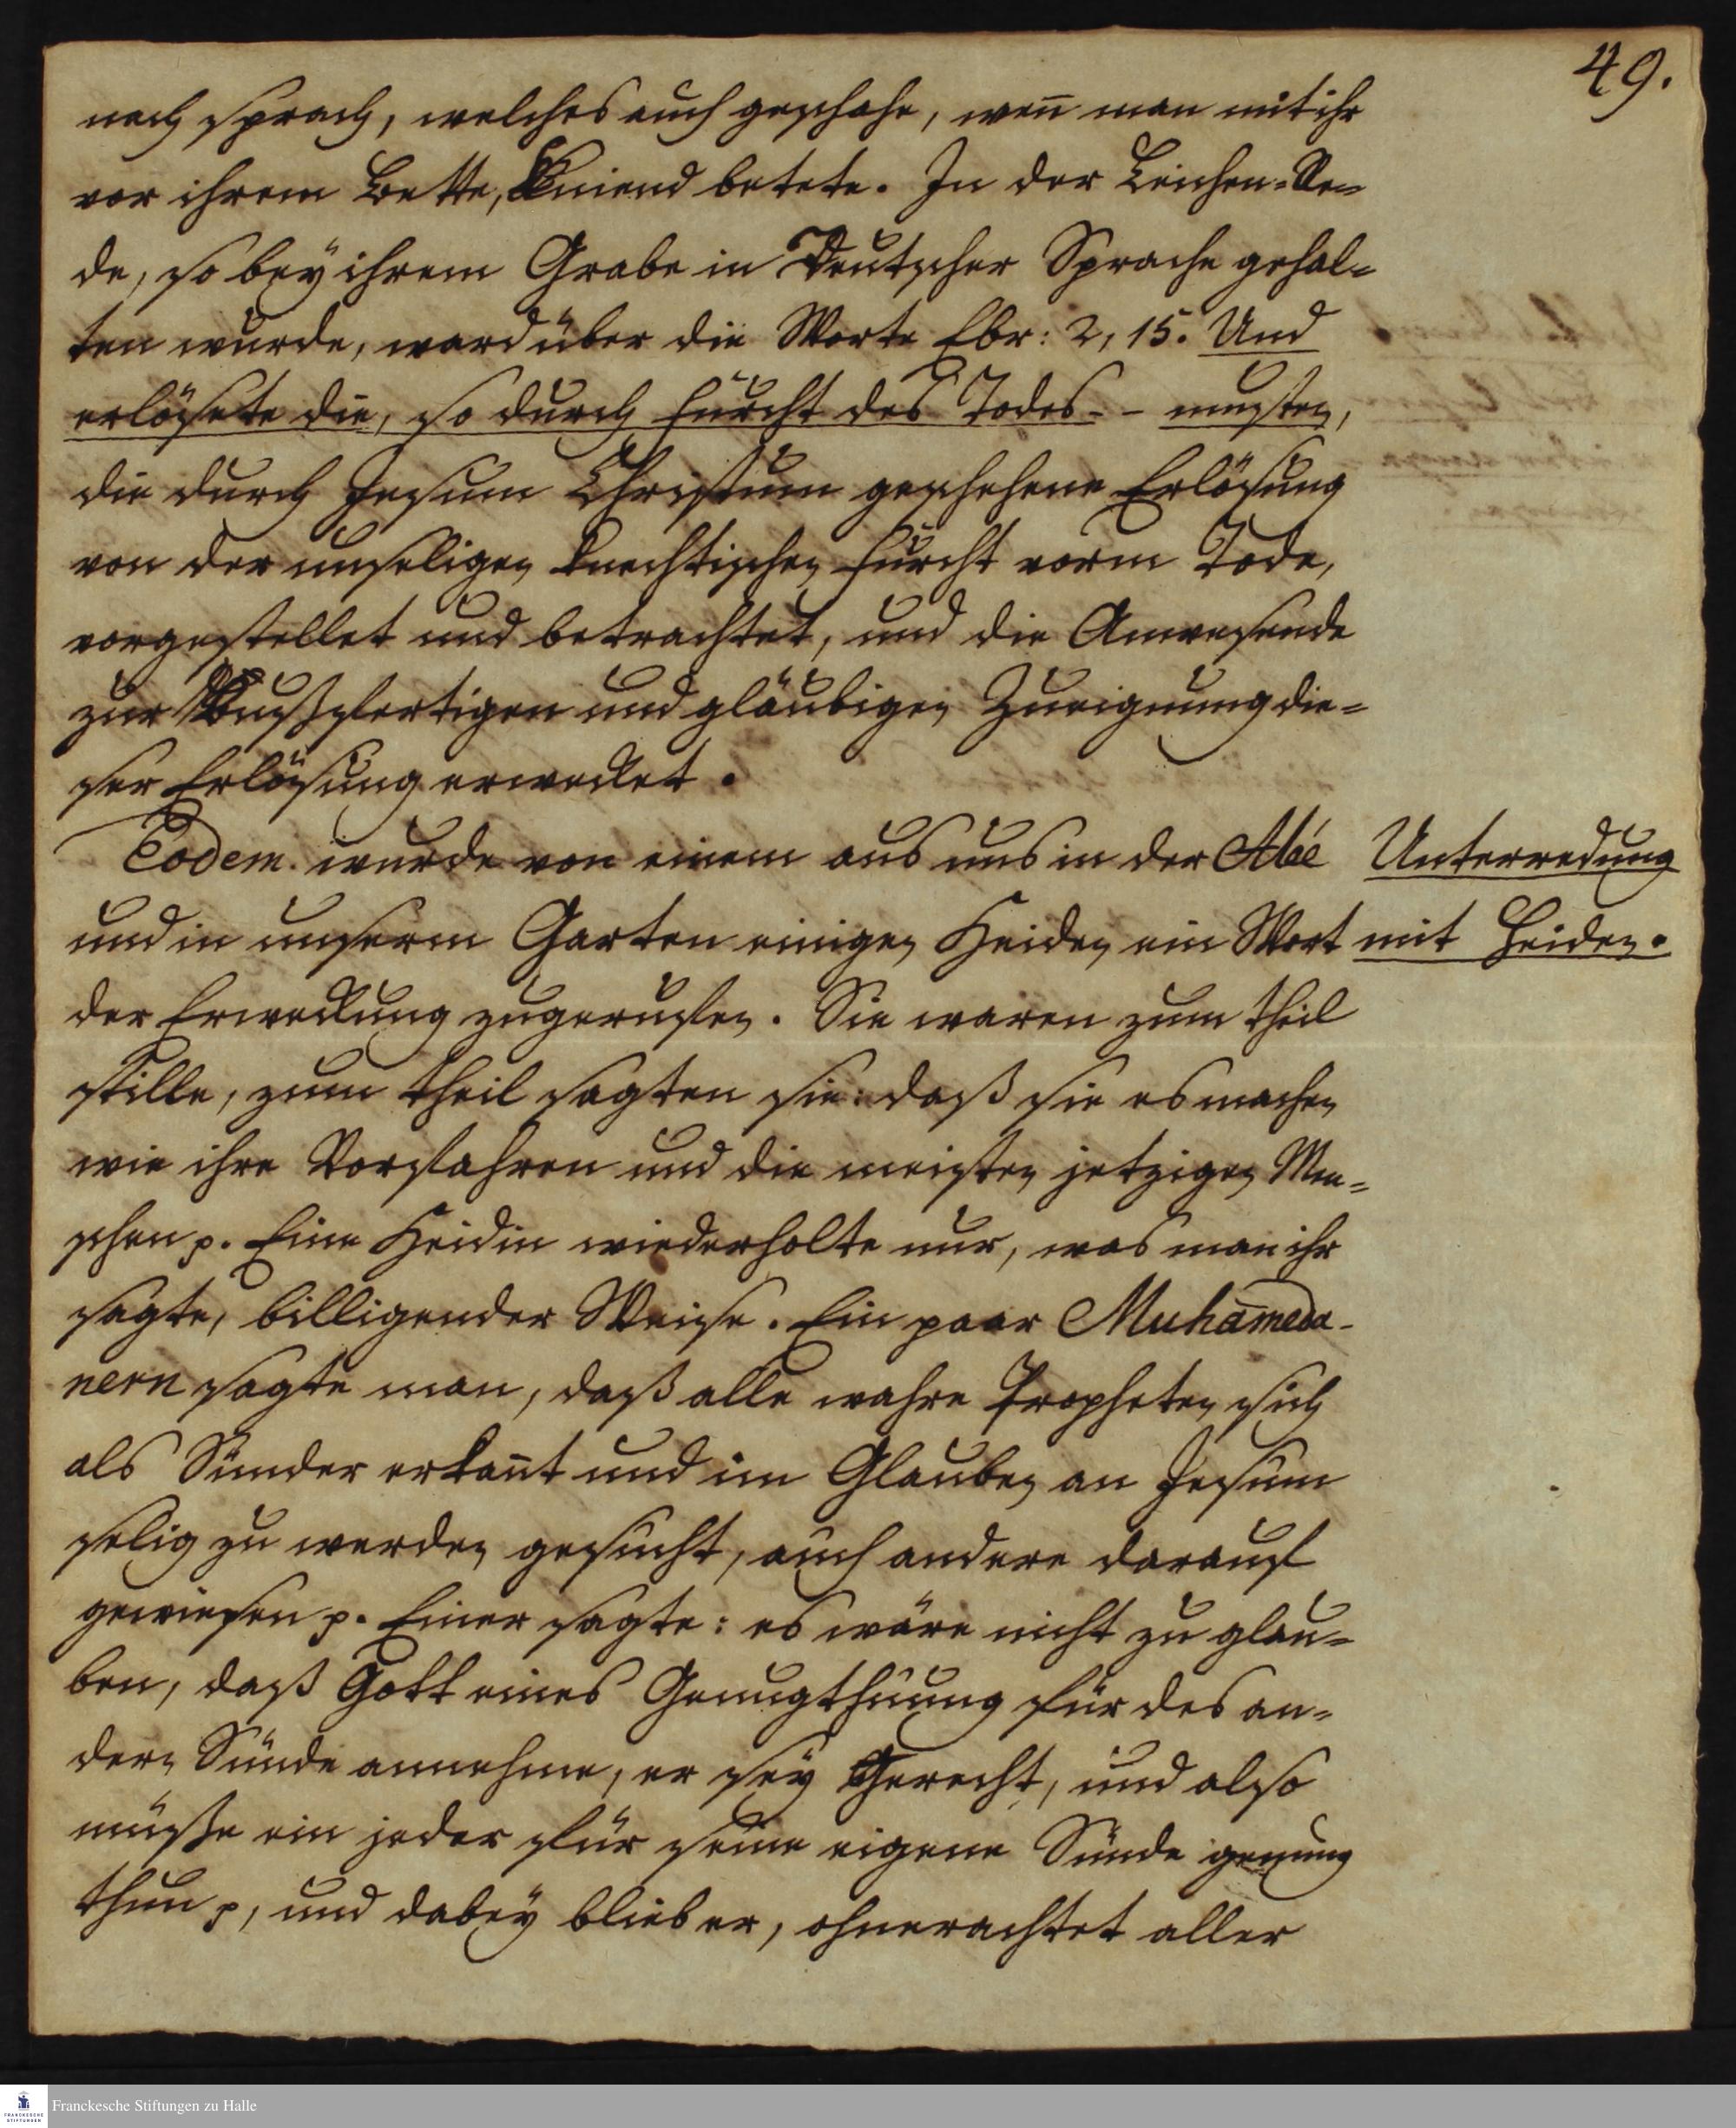 49.
nach sprach, welches auch geschahe, wen̄ man mit ihr
vor ihrem Bette, kniend betete. In der Leichen-Re=
de, so beÿ ihrem Grabe in Deutscher Sprache gehal=
ten wurde, ward über die Worte Ebr: 2, 15. Und
erlösete die, so durch Furcht des Todes - - musten,
die durch Jesum Christum geschehene Erlösung
von der unseligen knechtischen Furcht vorm Tode,
vorgestellet und betrachtet, und die Anwesende
zur bußfertigen und gläubigen Zueignung die=
ser Erlösung erwecket.
Eodem. wurde von einem aus uns in der Alée
und in unserm Garten einigen Heiden ein Wort
der Erweckung zugeruffen. Sie waren zum theil
stille, zum theil sagten sie: daß sie es machen
wie ihre Vorfahren und die meisten jetzigen Men=
schen p. Eine Heidin wiederholte nur, was man ihr
sagte, billigender Weise. Ein paar Muhameda-
nern sagte man, daß alle wahre Propheten sich
als Sünder erkan̄t und im Glauben an Jesum
selig zu werden gesucht, auch andere darauf
gewiesen p. Einer sagte: es wäre nicht zu glau=
ben, daß Gott eines Genugthuung für des an=
dern Sünde annehme, er seÿ Gerecht, und also
müsse ein jeder für seine eigene Sünde genung
thun p, und dabeÿ blieb er, ohnerachtet aller
Unterredung
mit Heiden.
Franckesche Stiftungen zu Halle
FRANCKESCHE
STIFTUNGEN